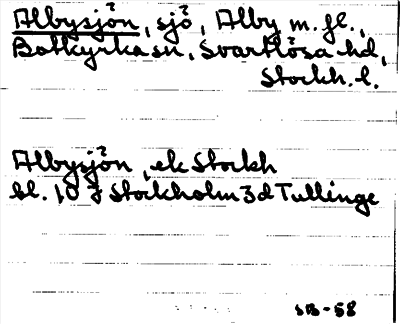 Albysjön, sjö, Alby m.fl.,
Botkyrka sn, Svartlösa hd,
Stockh. l.
Albysjön, ek Stockh
bl. 10 J Stockholm 3d Tullinge
SB-58